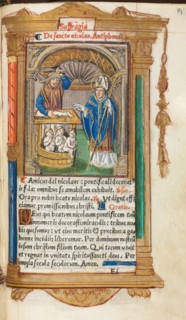 Suffragia
De sancto nicolao. Antiphona.
Amicus dei nicolaus pontificali decoratus
infulis: omnibus se amabilem exhibuit.
Ora pro nobis beate nicolae. Ut digni effi
ciamur promissionibus christi. Oratio.
Deus qui beatum nicolaum pontificem tuū
innumeris decorasti miraculis: tribue no
bis quesumus: vt eius meritis et precibus a ge
henne incēdiis liberemur. Per dominum nostrum
iesum christum filium tuum. Qui tecum viuit
et regnat in vnitate spiritussancti deus. Per
omnia secula seculorum. Amen.